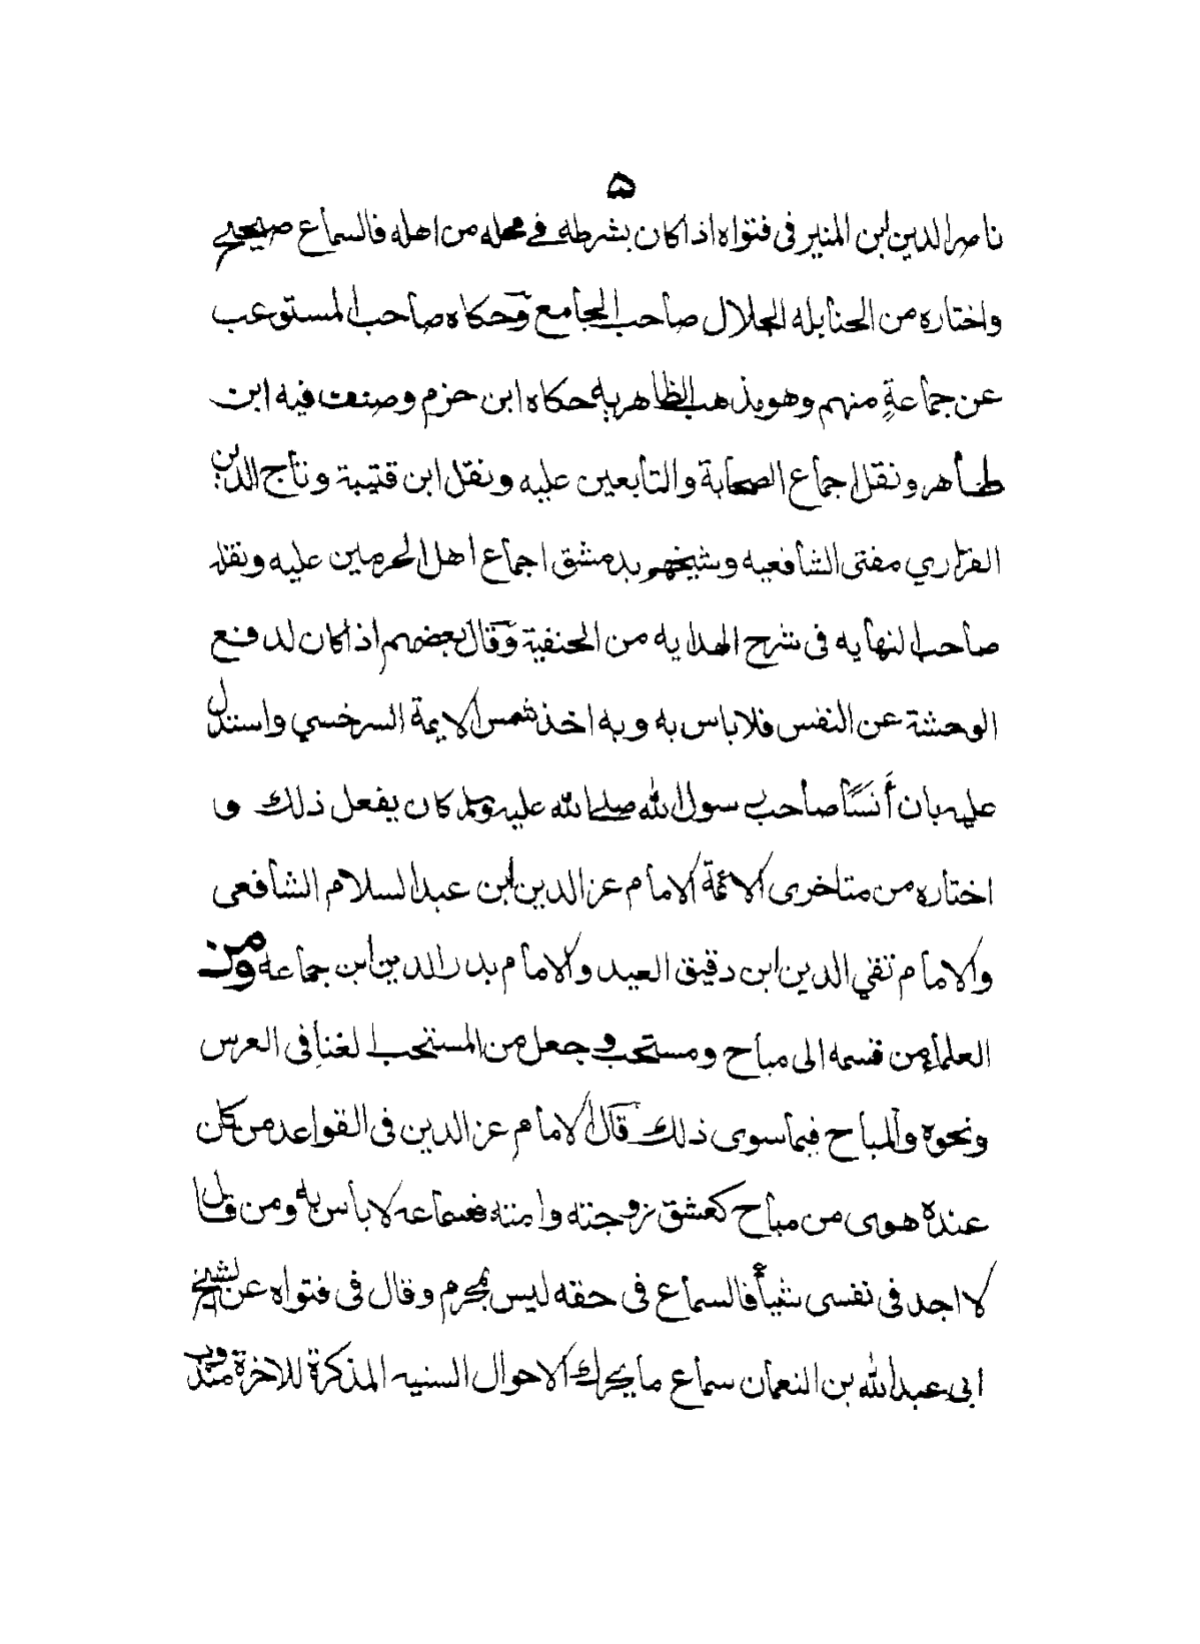 ۵
ناصر الدين ابن المنير فى فتواه اذا كان بشرطه في محله من اهله فالسماع صحيح
واختاره من الحنابله الجلال صاحب الجامع وحكاه صاحب المستوعب
عن جماعةٍ منهم وهو مذهب الظاهريه حكاه ابن حزم وصنف فيه ابن
طاهر ونقل اجماع الصحابة والتابعين عليه ونقل ابن قتيبة وتاج الدين
الفزاري مفتى الشافعيه وشيخهم بدمشق اجماع اهل الحرمين عليه ونقله
صاحب النهايه فى شرح الهدايه من الحنفية وقال بعضهم اذا كان لدفع
الوحشة عن النفس فلا باس به وبه اخذ شمس الايمة السرخسي واستدل
عليه بان أَنَسًا صاحب رسول الله صلى الله عليه وسلم كان يفعل ذلك و
اختاره من متاخرى الائمة الامام عز الدين ابن عبد السلام الشافعى
والامام تقي الدين ابن دقيق العيد والامام بدر الدين ابن جماعه ومن
العلماء من قسمه الى مباح ومستحب وجعل من المستحب الغنا فى العرس
ونحوه والمباح فيما سوى ذلك قال الامام عز الدين فى القواعد من كان
عنده هوى من مباح كعشق زوجته وامته فسماعه لا باس به ومن قال
لا اجد فى نفسى شيأ فالسماع فى حقه ليس بمحرم وقال فى فتواه عن الشيخ
ابى عبد الله بن النعمان سماع ما يحرك الاحوال السنيه المذكرة للاخرة مندوب